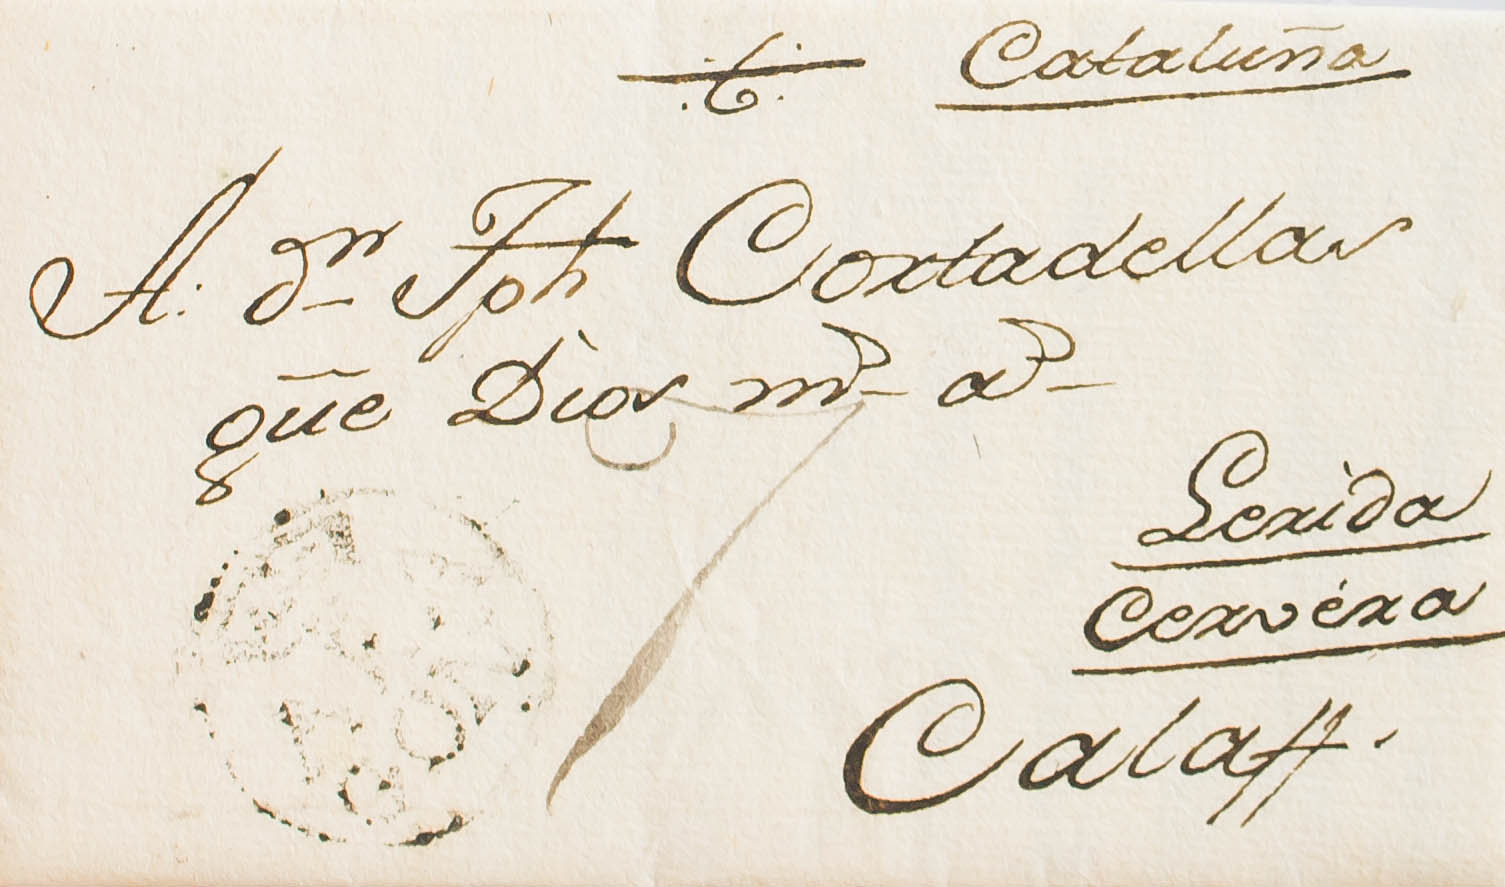 Cataluña
A: dn Jph Cortadellas
gūe Dios ms as
Lerida
Cervéra
Calaff.